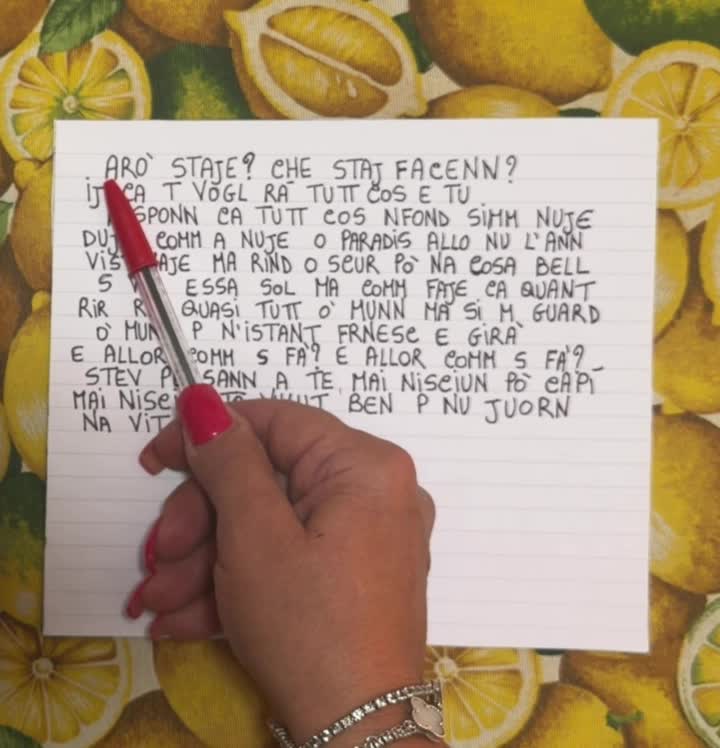 ARO' STAJE? CHE STAJ FACENN?
CA T VOGL RA TUTT COS E TU
CA TUTT COS NFOND SIMM NUJE
COMM A NUJE O PARADIS ALLO NU L'ANN
MA RIND O SCUR PÒ NA COSA BELL
S ESSA SOL MA COMM FAJE CA QUANT
RIR QUASI TUTT O' MUNN MA SI M GUARD
O' P N'ISTANT FRNESC E GIRA'
E ALLOR COMM S FA'? E ALLOR COMM S FA'?
STEV A TE MAI NISCIUN PÒ CAPÌ
MAI BEN P NU JUORN
NA